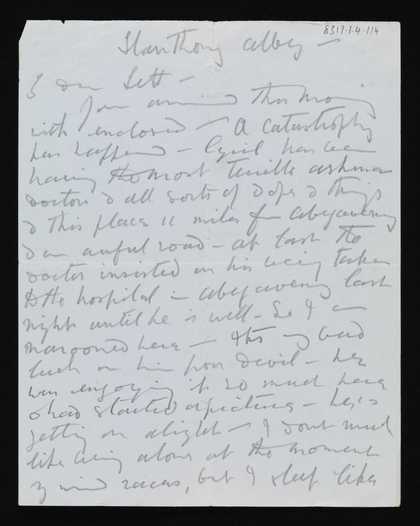 8317.1.4.114
Llanthony abbey –
Dear Sett –
Your arrived this morning
with enclosed – A catastrophy
has happened – Cyril has been
having the most terrible asthma
doctors & all sorts of dopes & things
& this place 11 miles from abergavenny
& an awful road – at last the
doctor insisted on his being taken
to the hospital in abergavenny last
night until he is well – So I am
marooned here – bad
luck on him poor devil – he
was enjoying it so much here
& had started a picture – he is
getting on alright – I dont much
like being alone at the moment
my mind races, but I sleep like